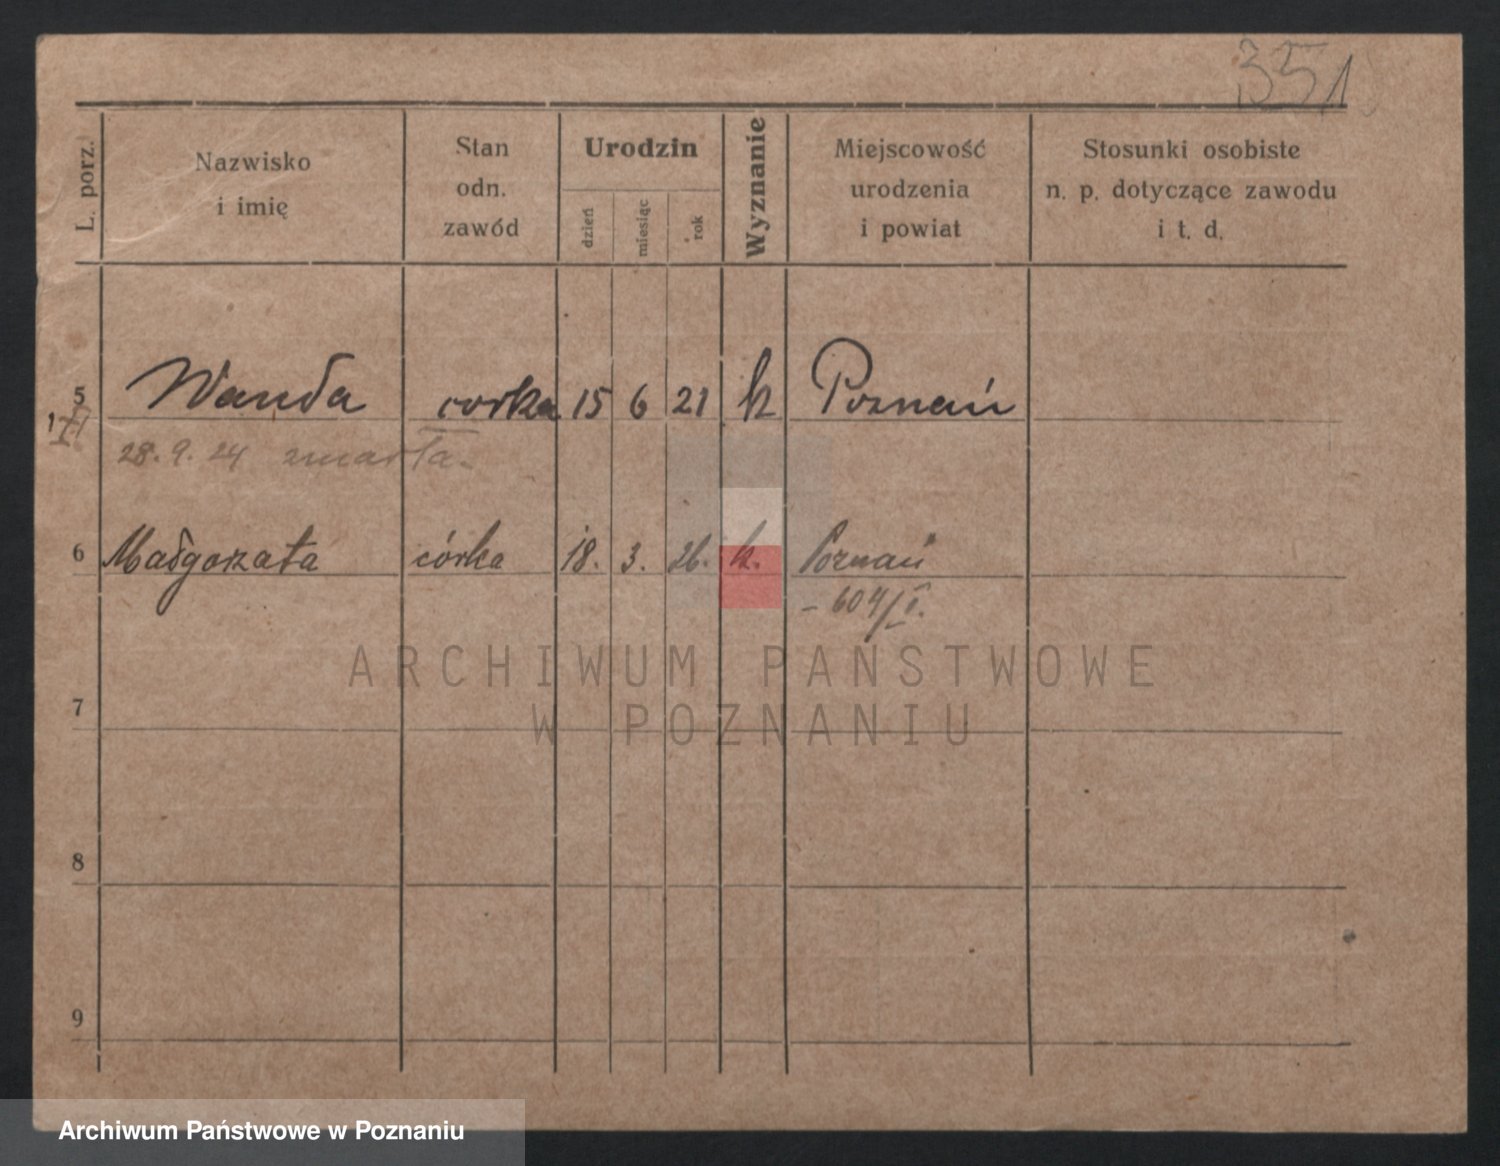 351
L. porz.
Nazwisko
i imię
Stan
odn.
zawód
Urodzin
dzień
miesiąc
rok
Wyznanie
Miejscowość
urodzenia
i powiat
Stosunki osobiste
n. p. dotyczące zawodu
i t. d.
5 Wanda corka 15 6 21 k Poznań
28. 9. 24 zmarła.
6 Małgorzata córka 18. 3. 26. k. Poznań
- 604/I.
ARCHIWUM PAŃSTWOWE
W POZNANIU
7
8
9
Archiwum Państwowe w Poznaniu